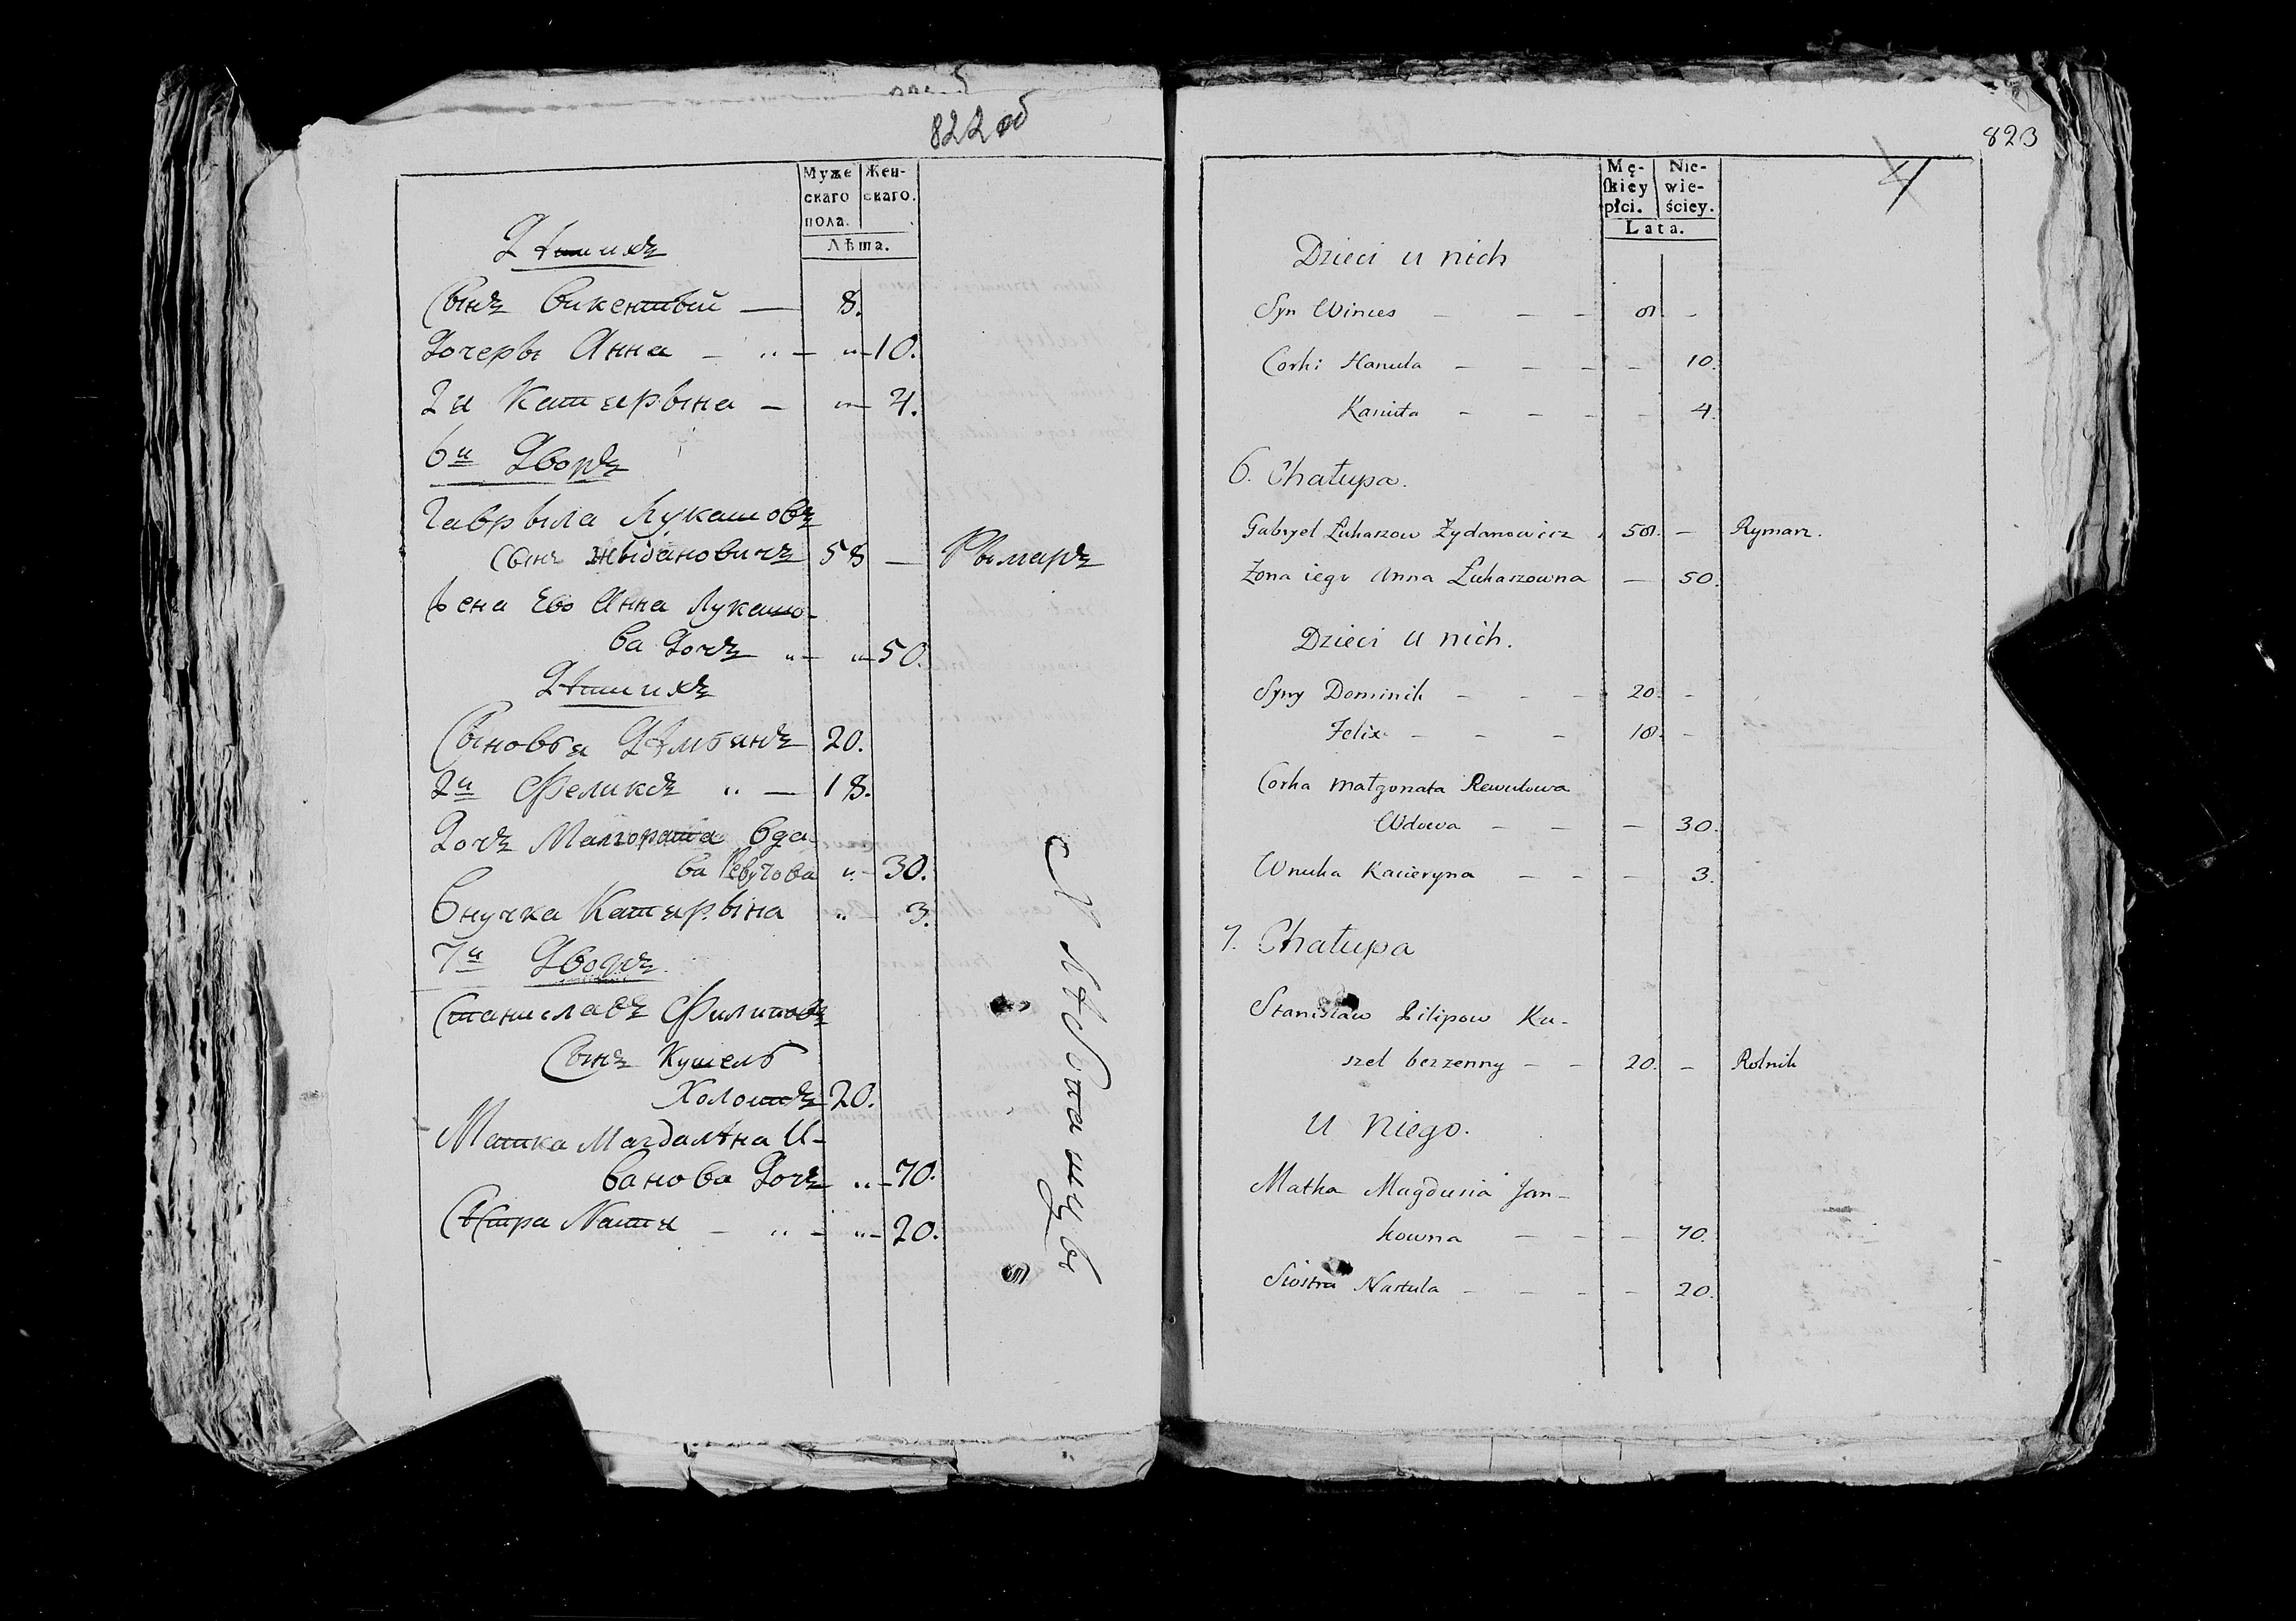 822 об
Муже
скаго
пола.
Жен-
скаго.
Лѣта.
Дѣти ихъ
Сынъ Викентый — 8.
Дочеры Анна — „ — „ — 10.
2я Катярына — „ — 4.
6й Дворъ
Гаврыла Лукашовъ
сынъ Жыдановичъ 58 — Рымаръ
Жена Ево Анна Лукашо-
ва Дочъ „ — „ — 50.
Дѣти ихъ
Сыновья Дѣмбянъ 20.
2й Феликсъ „ — 18.
Дочъ Малгората вда-
ва „ — 30.
Внучка Катярына „ 3.
7й Дворъ
Станиславъ Филиповъ
Сынъ Кушель
Холостъ 20.
Матка Магдалѣна И-
ванова Дочъ „ — 70.
Сѣстра Настя — „ — „ — 20.
823
4
Mę-
ſkiey
płci.
Nie-
wie-
ściey.
Lata.
Dzieci u nich
Syn Winces — — — 8 —
Corki Hanula — — — — 10.
Kasiuta — — — — 4.
6. Chałupa.
Gabryel Łukaszow Żydanowicz 58. — Rymarz.
Żona iego Anna Łukaszowna — 50.
Dzieci u nich.
Syny Dominik — — — 20. —
Felix — — — 18. —
Corka Małgorzata Rewutowa
Wdowa — — — 30.
Wnuka Kacieryna — — — 3.
7. Chałupa
Stanisław Pilipow Ku-
szel bezzenny — — 20. — Rolnik
U Niego.
Matka Magdusia Jan-
kowna — — — 70.
Siostra Nastula — — — — 20.